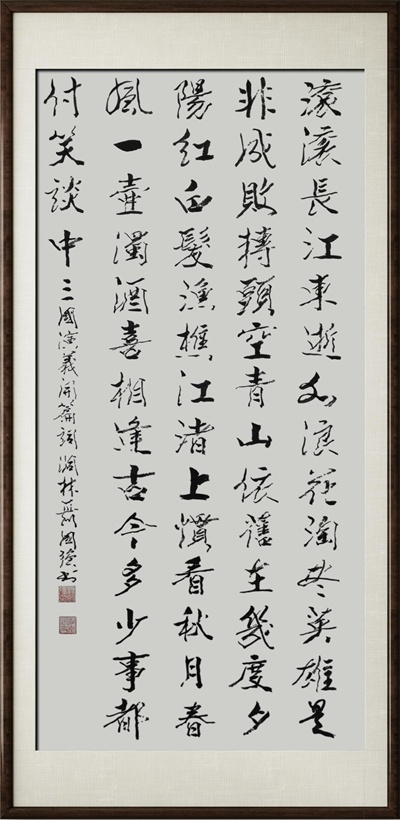 滚滚長江東逝水浪花淘尽英雄是
非成敗轉頭空青山依舊在幾度夕
陽紅白髮漁樵江渚上慣看秋月春
風一壺濁酒喜相逢古今多少事都
付笑談中三國演義開篇詞